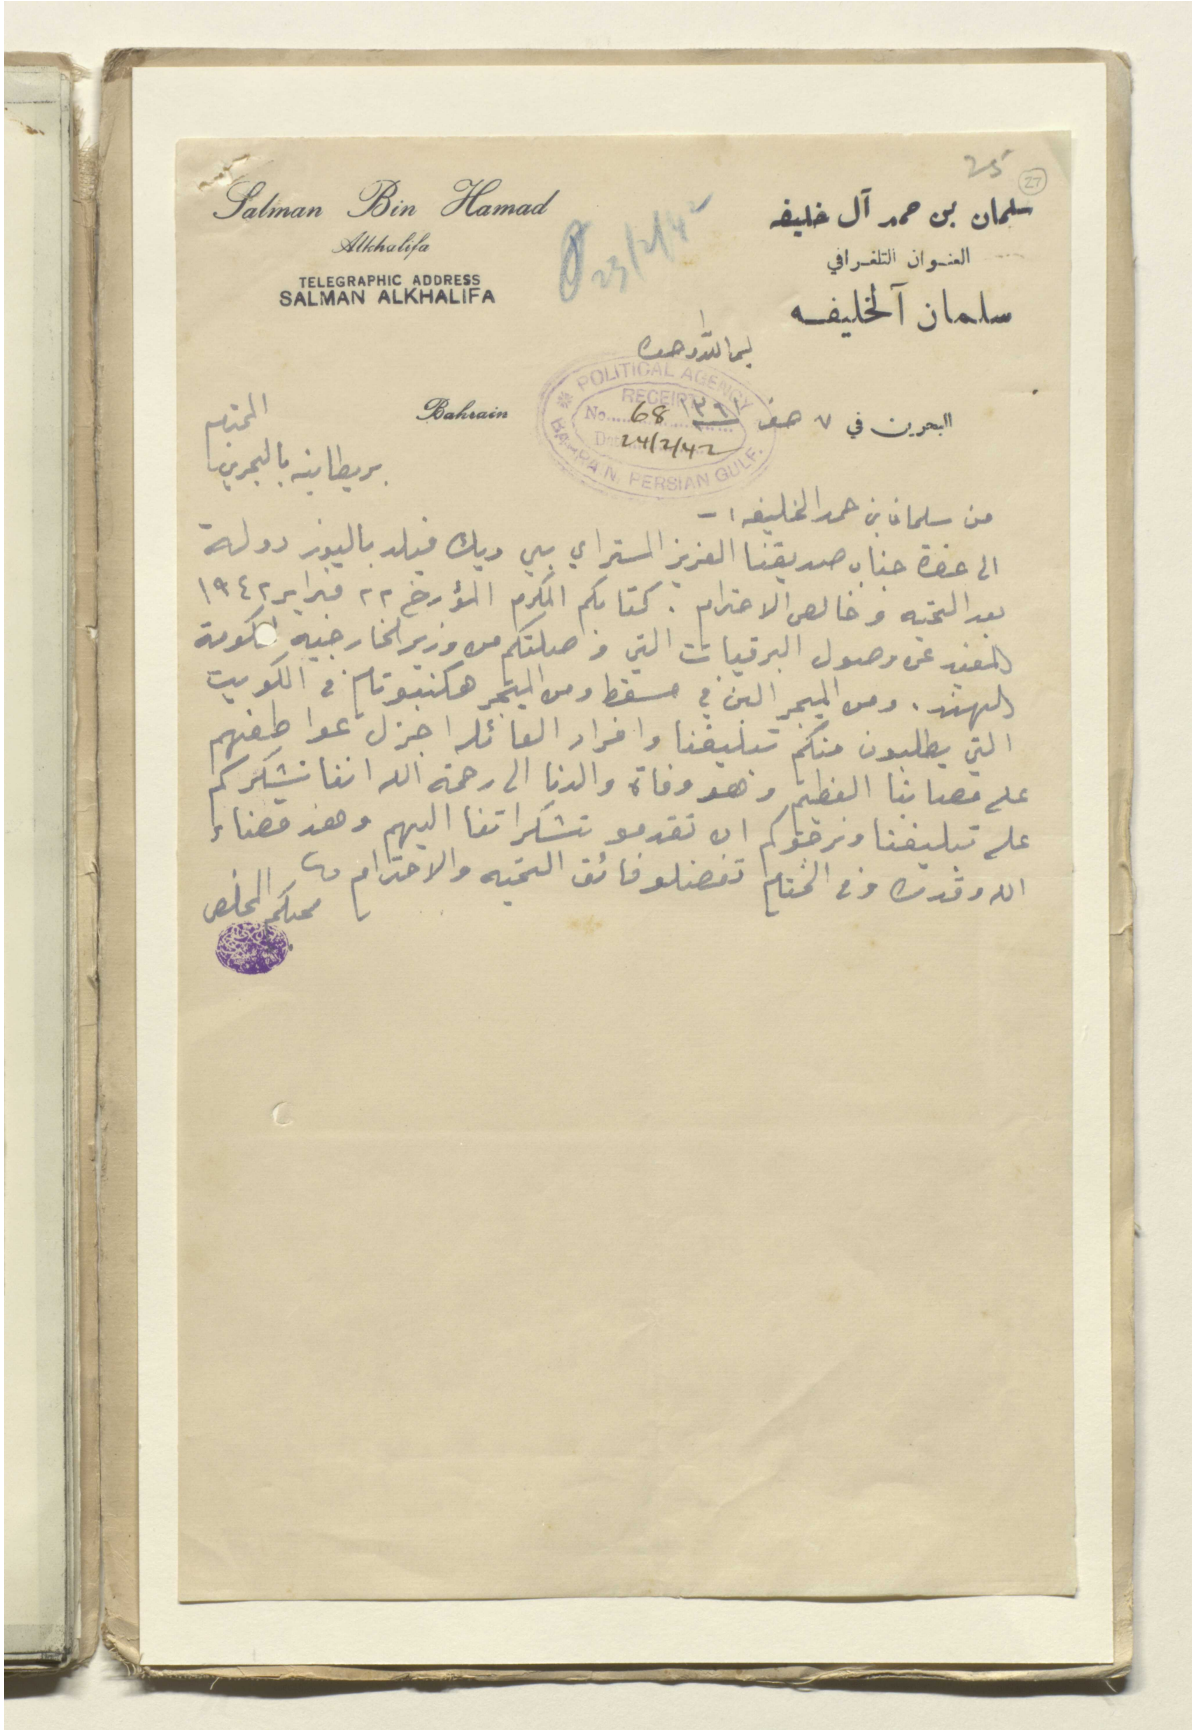 25
27
Salman Bin Hamad
Alkhalifa
TELEGRAPHIC ADDRESS
SALMAN ALKHALIFA
23/2/42
سلمان بن حمد آل خليفه
العنوان التلغرافي
سلمان آلخليفه
بسم الله وحده
Bahrain
POLITICAL AGENCY
RECEIPT
No. 68
Date 24/2/42
BAHRAIN, PERSIAN GULF.
البحرين في ٧ صفر ١٣٦١
من سلمان بن حمد الخليفه :ـ
الى حضرة جناب صديقنا العزيز المستر اي بي ويك فيلد باليوز دولة بريطانيه بالبحرين المحترم
بعد التحيه وخالص الاحترام . كتابكم المكرم المؤرخ ٢٢ فبراير ١٩٤٢
المفيد عن وصول البرقيات التي وصلتكم من وزير الخارجيه لحكومة
الهند . ومن الميجر الن في مسقط ومن الميجر هكنبوتام في الكويت
التي يطلبون منكم تبليغنا وافراد العائله اجزل عواطفهم
على مصابنا العظيم وهو وفاة والدنا الى رحمة الله اننا نشكركم
على تبليغنا ونرجوكم ان تقدمو تشكراتنا اليهم وهذ قضاء
الله وقدره وفي الختام تفضلو فائق التحيه والاحترام
محبكم المخلص